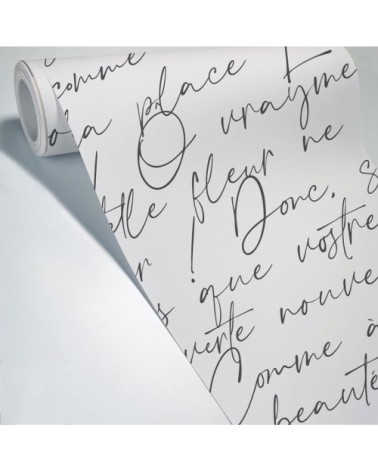 comme
la place
O vrayme
fleur ne
! Donc, s
que vostre
verte nouve
Comme à
beauté